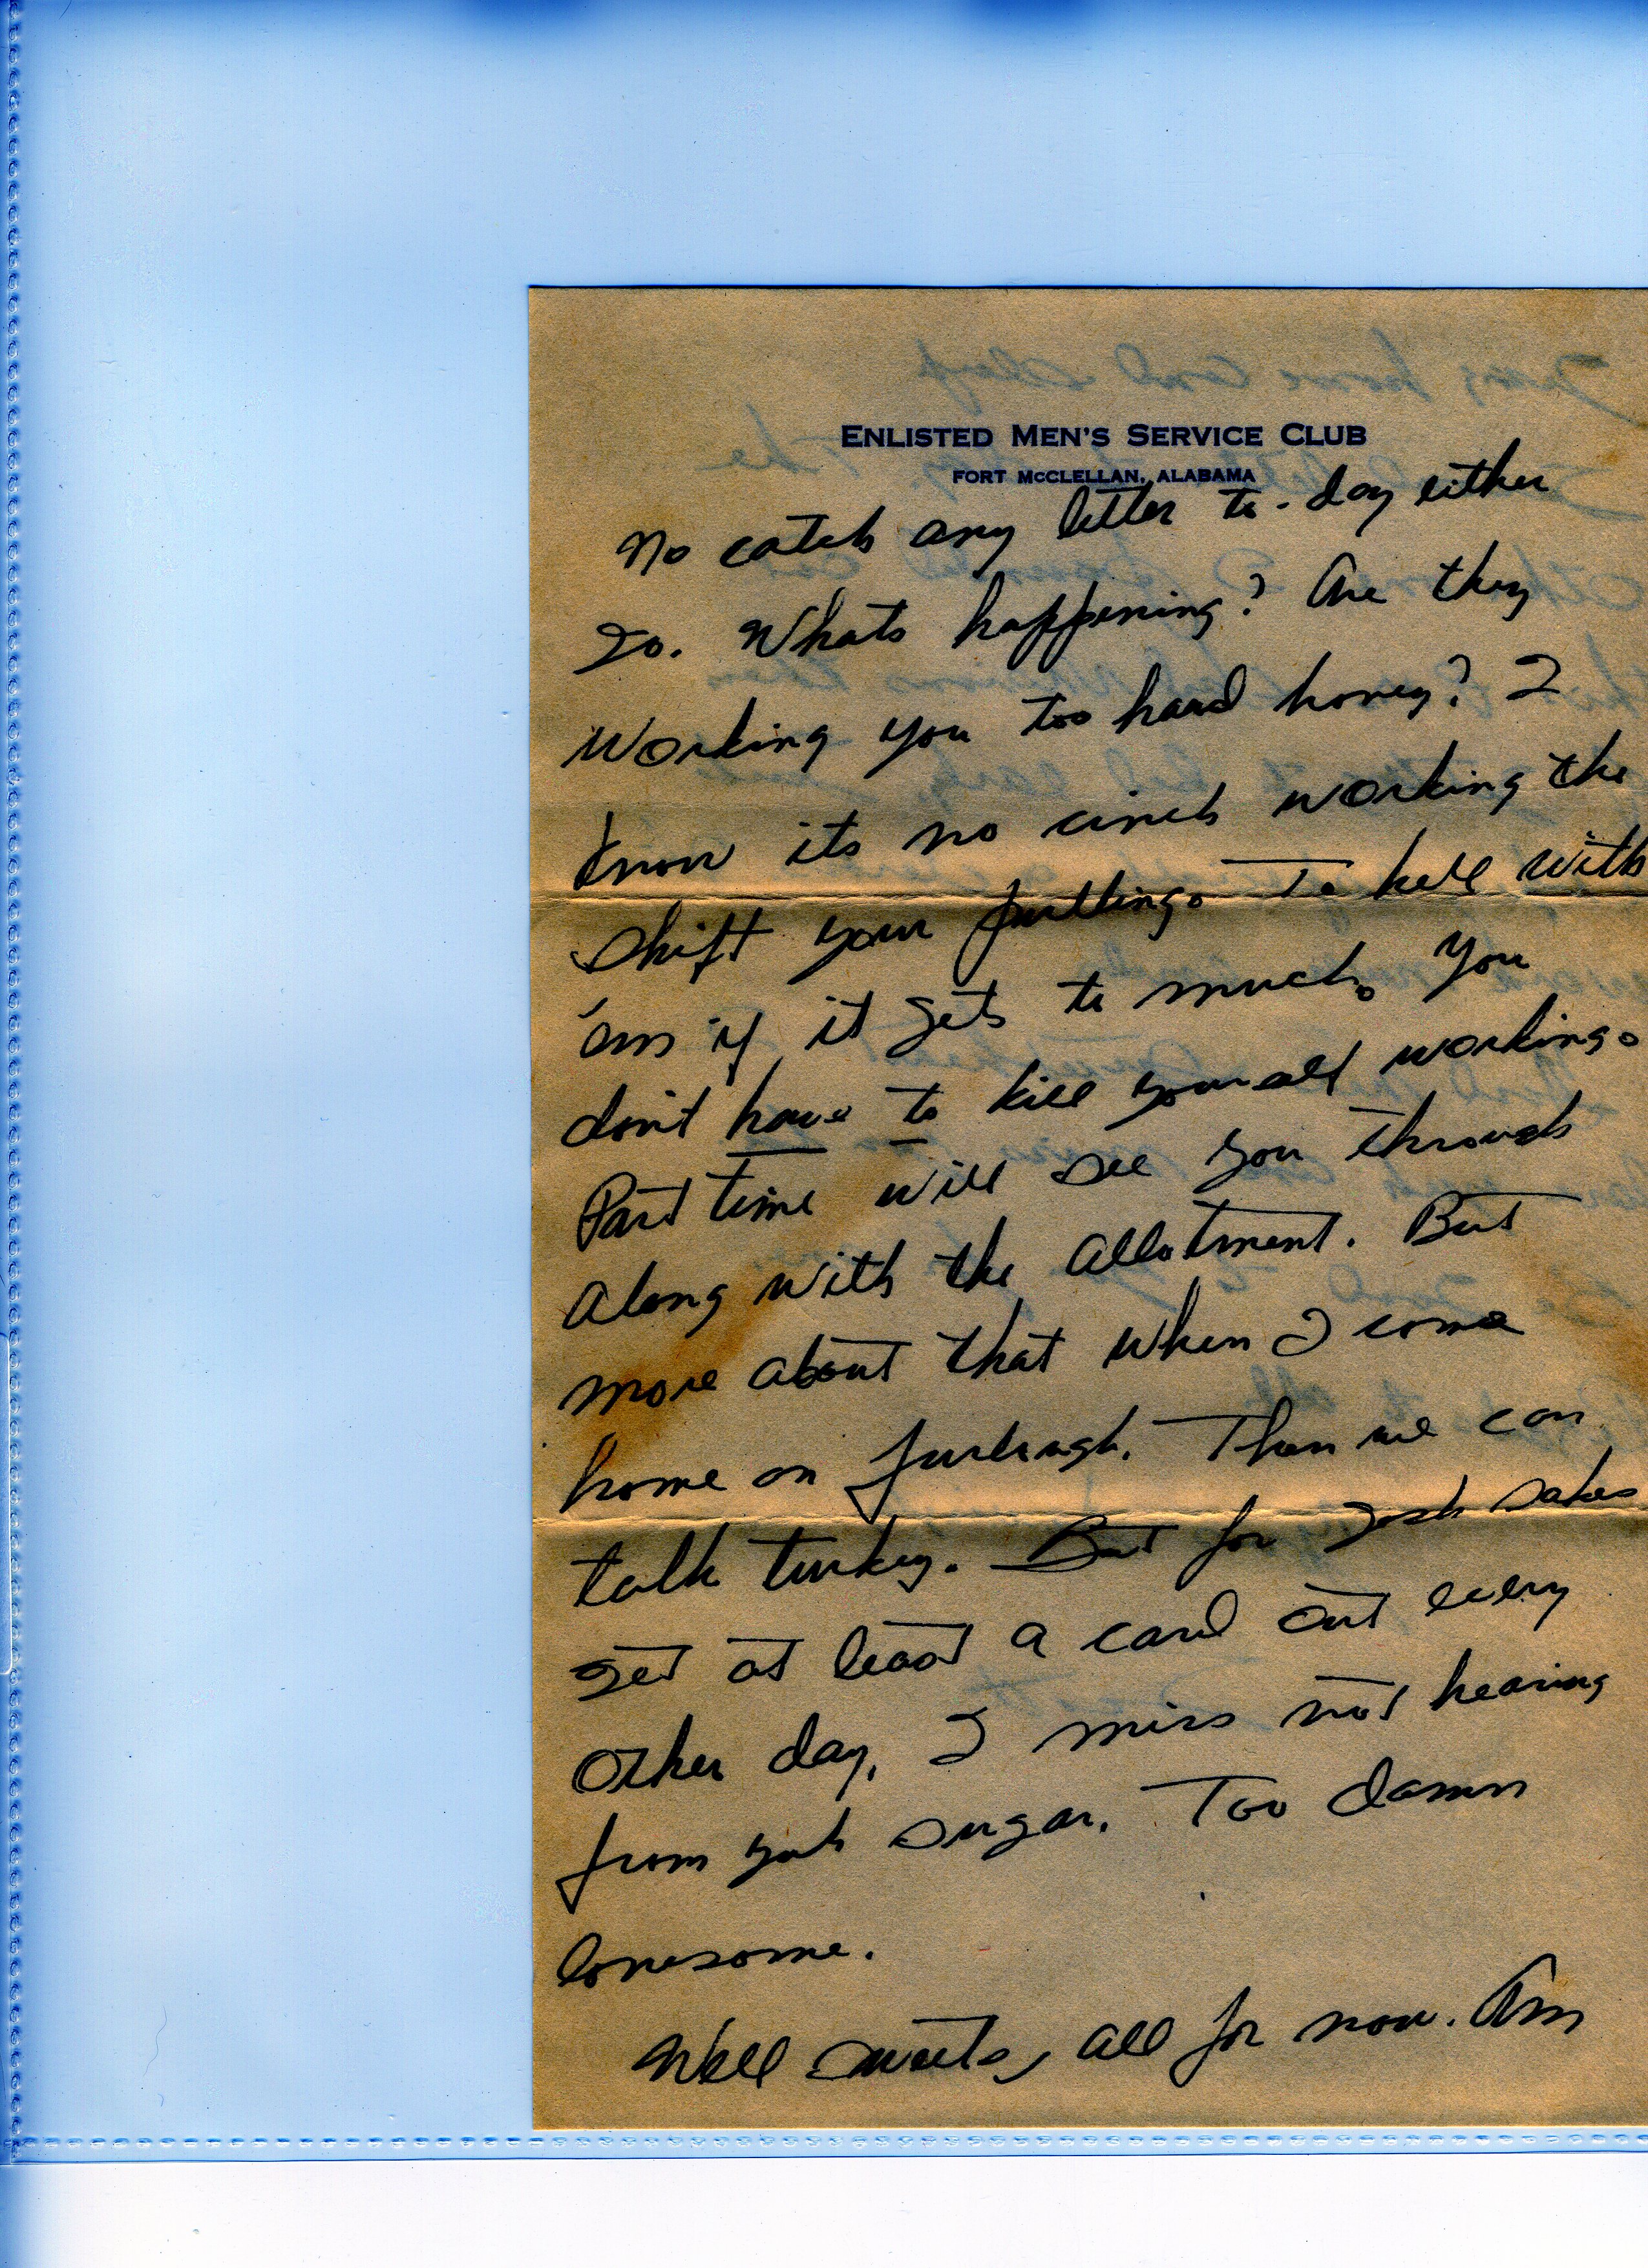 ENLISTED MEN'S SERVICE CLUB
FORT McCLELLAN, ALABAMA
No catch any letter to-day either
Jo. Whats happening? Are they
working you too hard honey? I
know its no cinch working the
shift your pulling. To hell with
'em if it gets to much. You
don't have to kill yourself working.
Part time will see you through
along with the allotment. But
more about that when I come
home on furlough. Then we can
talk turkey. But for gosh sakes
get at least a card out every
other day, I miss not hearing
from yuh sugar. Too damn
lonesome.
Well sweets, all for now. Am